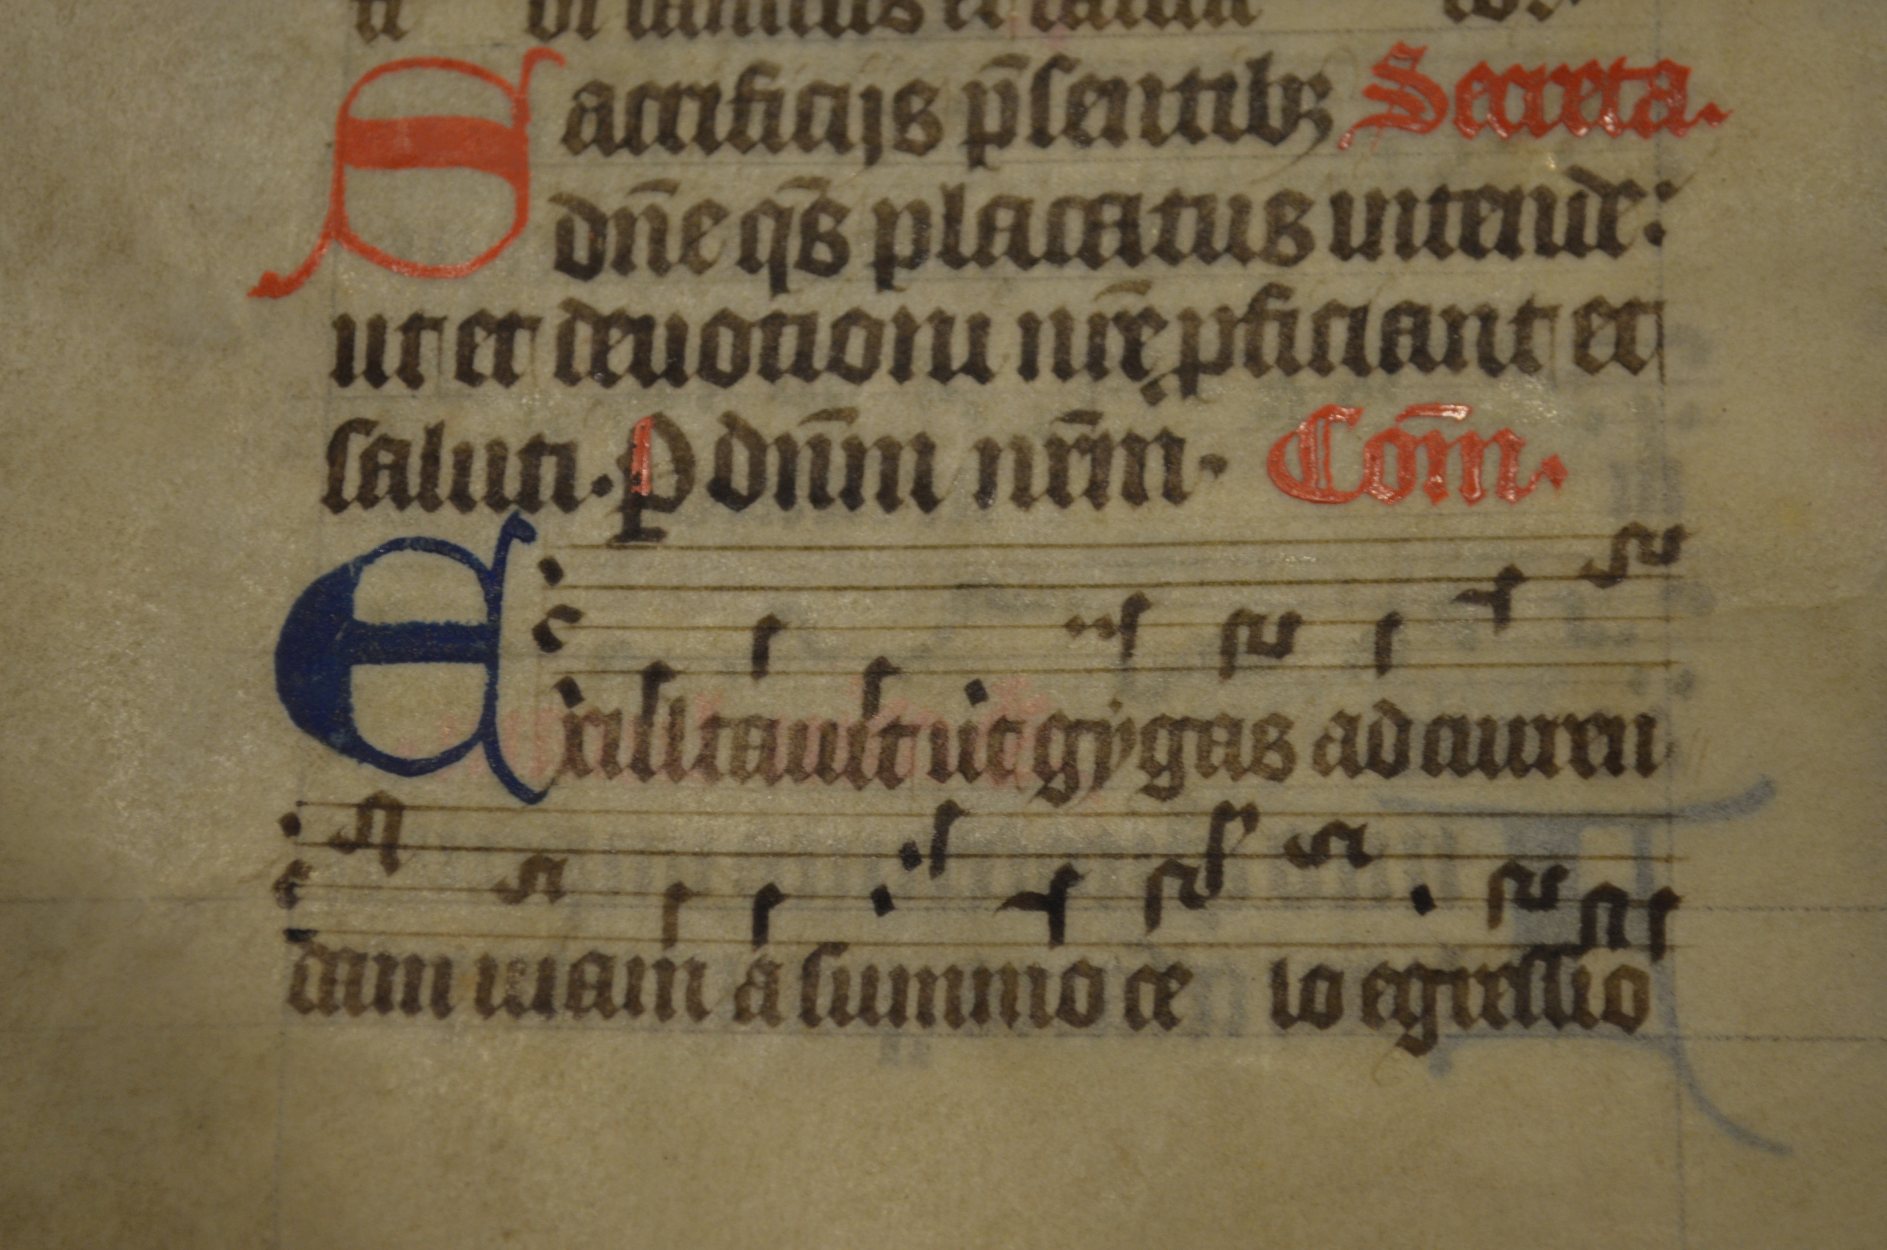 Sacrificijs p̄sentibꝫ Secreta.
dn̄e qs̄ placatus intende:
ut et deuotioni nr̄e ꝓficiant et
saluti. P dn̄m nr̄m. Com̄.
Exultauit ut gygas ad curren
dam uiam a summo ce lo egressio